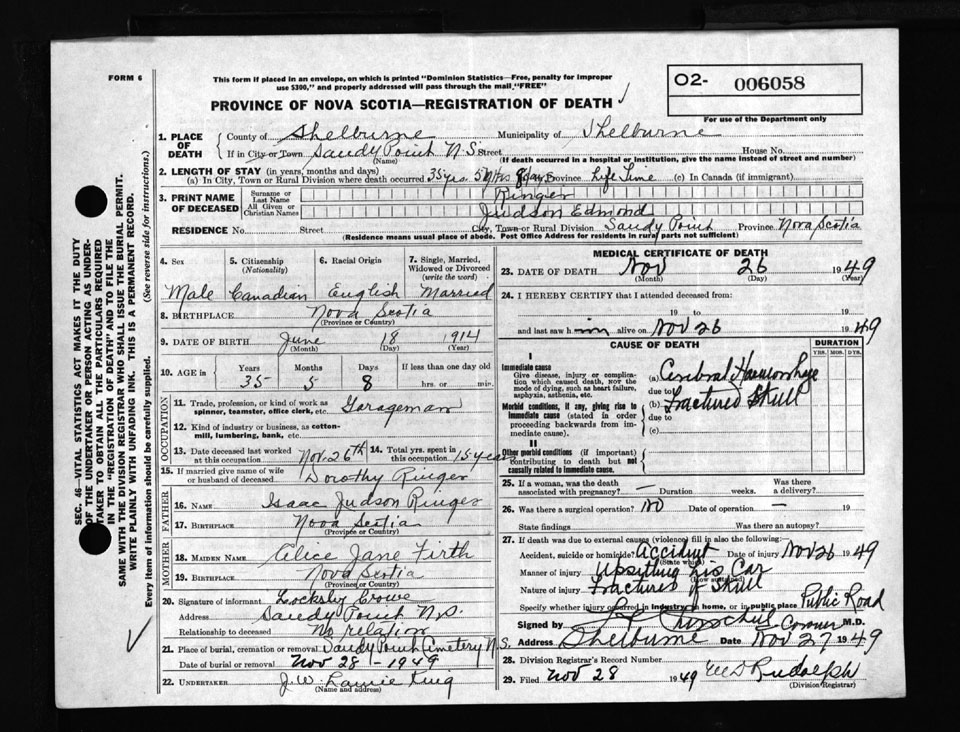 FORM 6
This form if placed in an envelope, on which is printed "Dominion Statistics—Free, penalty for improper
use $300," and properly addressed will pass through the mail "FREE"
PROVINCE OF NOVA SCOTIA—REGISTRATION OF DEATH
O2- 006058
For use of the Department only
SEC. 46—VITAL STATISTICS ACT MAKES IT THE DUTY
OF THE UNDERTAKER OR PERSON ACTING AS UNDER-
TAKER TO OBTAIN ALL THE PARTICULARS REQUIRED
IN THE "REGISTRATION OF DEATH" AND TO FILE THE
SAME WITH THE DIVISION REGISTRAR WHO SHALL ISSUE THE BURIAL PERMIT.
WRITE PLAINLY WITH UNFADING INK. THIS IS A PERMANENT RECORD.
Every item of information should be carefully supplied. (See reverse side for instructions.)
1. PLACE OF DEATH
County of Shelburne Municipality of Shelburne
If in City or Town Sandy Point N.S. Street House No.
(Name) (If death occurred in a hospital or institution, give the name instead of street and number)
2. LENGTH OF STAY (in years, months and days)
(a) In City, Town or Rural Division where death occurred 35 yrs. 5 Mths 8 days Province Life Time (c) In Canada (if immigrant)
3. PRINT NAME OF DECEASED
Surname or Last Name Ringer
All Given or Christian Names Judson Edmond
RESIDENCE No. Street City, Town or Rural Division Sandy Point Province Nova Scotia
(Residence means usual place of abode. Post Office Address for residents in rural parts not sufficient)
4. Sex 5. Citizenship (Nationality) 6. Racial Origin 7. Single, Married, Widowed or Divorced (write the word)
Male Canadian English Married
8. BIRTHPLACE Nova Scotia
(Province or Country)
9. DATE OF BIRTH June 18 1914
(Month) (Day) (Year)
10. AGE in Years Months Days If less than one day old
35 5 8 hrs. or min.
OCCUPATION
11. Trade, profession, or kind of work as
spinner, teamster, office clerk, etc. Garageman
12. Kind of industry or business, as cotton-
mill, lumbering, bank, etc.
13. Date deceased last worked at this occupation Nov. 26th 14. Total yrs. spent in this occupation 15 years
15. If married give name of wife
or husband of deceased Dorothy Ringer
FATHER
16. NAME Isaac Judson Ringer
17. BIRTHPLACE Nova Scotia
(Province or Country)
MOTHER
18. MAIDEN NAME Alice Jane Firth
19. BIRTHPLACE Nova Scotia
(Province or Country)
20. Signature of informant Locksby Crowe
Address Sandy Point N.S.
Relationship to deceased No relation
21. Place of burial, cremation or removal Sandy Point Cemetery N.S.
Date of burial or removal Nov 28 - 1949
22. UNDERTAKER J.W. King
(Name and address)
MEDICAL CERTIFICATE OF DEATH
23. DATE OF DEATH Nov 26 1949
(Month) (Day) (Year)
24. I HEREBY CERTIFY that I attended deceased from:
19 to 19
and last saw him alive on Nov 26 1949
CAUSE OF DEATH DURATION
YRS. MOS. DYS.
I
Immediate cause
Give disease, injury or complica-
tion which caused death, NOT the
mode of dying, such as heart failure,
asphyxia, asthenia, etc.
(a) Cerebral Haemorrhage
due to
Morbid conditions, if any, giving rise to
immediate cause (stated in order
proceeding backwards from im-
mediate cause).
(b) Fractured Skull
due to
(c)
II
Other morbid conditions (if important)
contributing to death but not
causally related to immediate cause.
25. If a woman, was the death
associated with pregnancy? — Duration weeks. Was there a delivery?
26. Was there a surgical operation? No Date of operation — 19
State findings Was there an autopsy?
27. If death was due to external causes (violence) fill in also the following:
Accident, suicide or homicide? Accident Date of injury Nov 26 1949
(State which)
Manner of injury Upsitting his Car
(How sustained)
Nature of injury Fractured of Skull
Specify whether injury occurred in industry, in home, or in public place Public Road
Signed by Coroner M.D.
Address Shelburne Date Nov 27 1949
28. Division Registrar's Record Number
29. Filed Nov 28 1949 Rudolph
(Division Registrar)